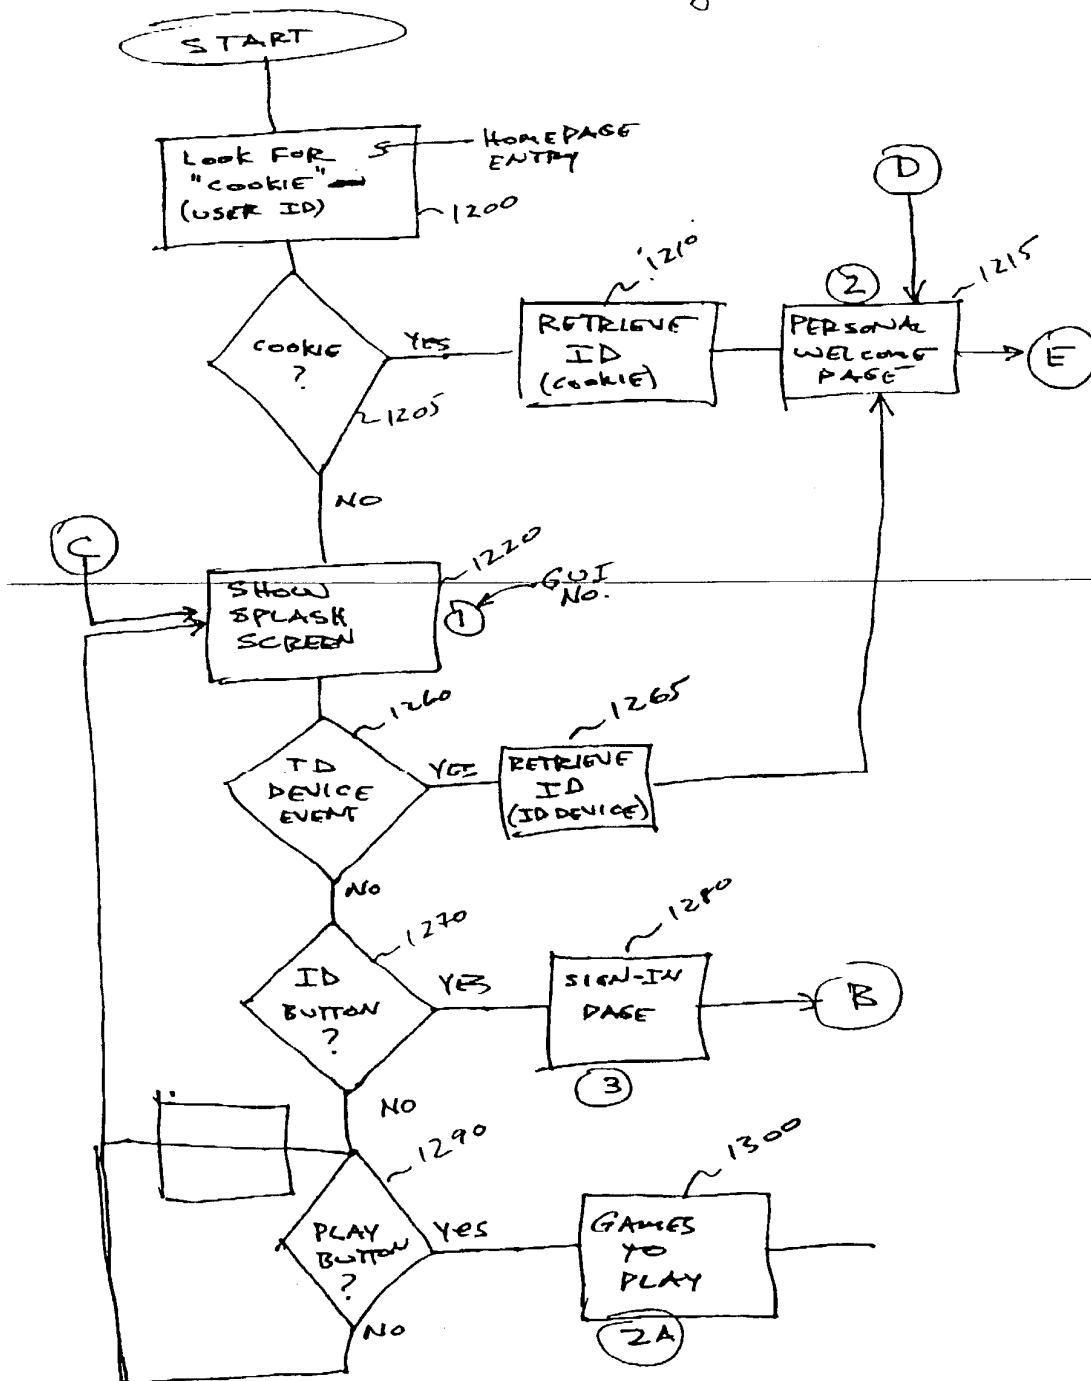 START
LOOK FOR
"COOKIE"
(USER ID)
HOMEPAGE
ENTRY
1200
D
1210
2
1215
COOKIE
?
YES
RETRIEVE
ID
(COOKIE)
PERSONAL
WELCOME
PAGE
E
1205
NO
C
1220
SHOW
SPLASH
SCREEN
1
GUI
NO.
1260
1265
ID
DEVICE
EVENT
YES
RETRIEVE
ID
(ID DEVICE)
NO
1270
1280
ID
BUTTON
?
YES
SIGN-IN
PAGE
B
3
NO
1290
1300
PLAY
BUTTON
?
YES
GAMES
TO
PLAY
NO
2A